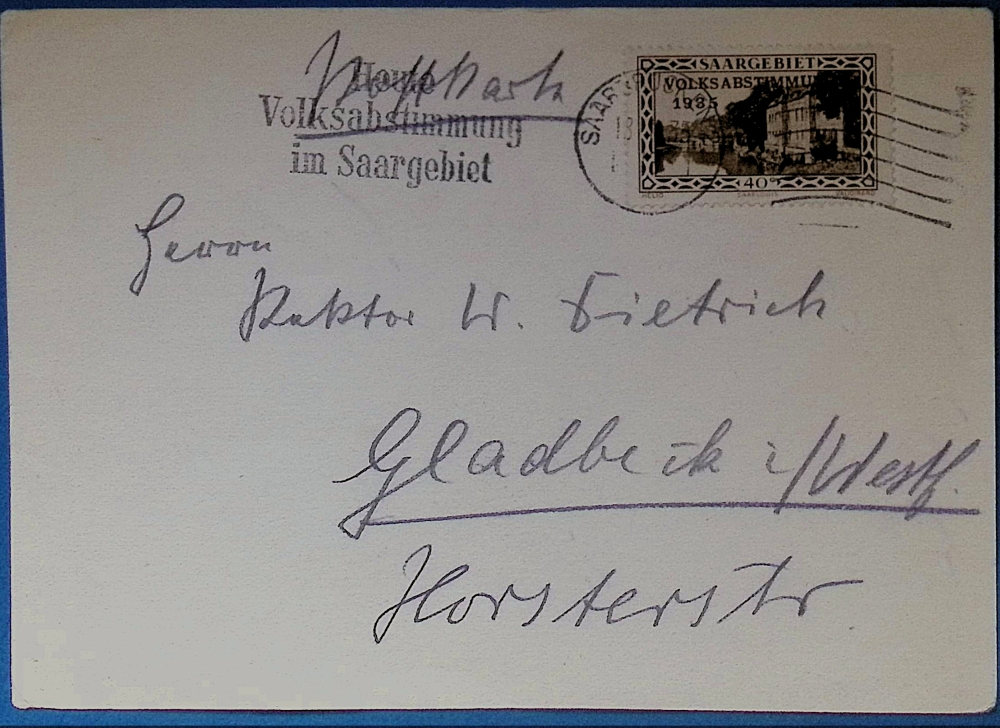 Postkarte
Heute
Volksabstimmung
im Saargebiet
SAARGEBIET
VOLKSABSTIMMUNG
1935
40
Herrn
Rektor W. Dietrich
Gladbeck i/Westf.
Horsterstr